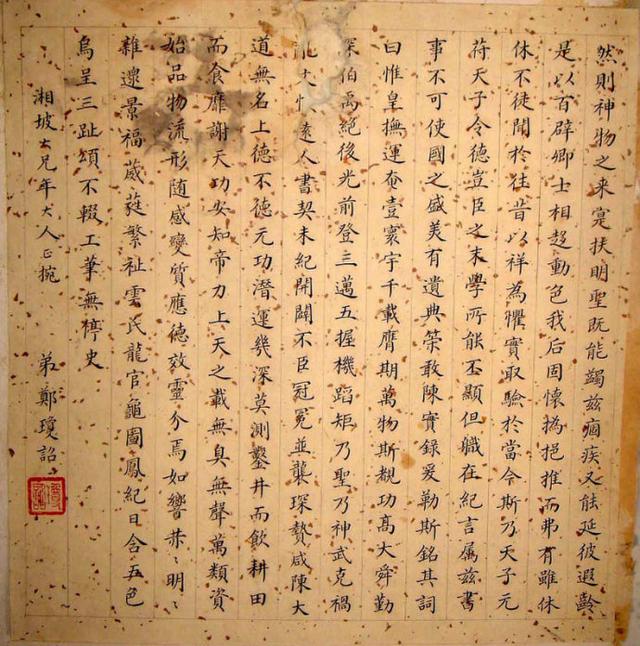 然則神物之来寔扶明聖既能蠲兹痼疾又能延彼遐齡
是以百辟卿士相趍動色我后固懷撝挹推而弗有雖休
休不徒聞於往昔以祥為懼實取驗於當今斯乃天子元
苻天子令德豈臣之末學所能丕顯但職在紀言屬兹書
事不可使國之盛美有遺典榮敢陳實錄爰勒斯銘其詞
曰惟皇撫運奄壹寰宇千載膺期萬物斯覩功髙大舜勤
深伯禹絕後光前登三邁五握機蹈矩乃聖乃神武克禍
遠人書契未紀開闢不臣冠冕並襲琛贄咸陳大
道無名上德不德元功潛運幾深莫測鑿井而飲耕田
而食靡謝天功安知帝力上天之載無臭無聲萬類資
始品物流形随感變質應德效靈介焉如響〻明〻
雜遝景福葳蕤繁祉雲氏龍官龜圖鳳紀日含五色
烏呈三趾頌不輟工筆無停史
湘坡大兄年大人正捥
弟鄭瓊詔